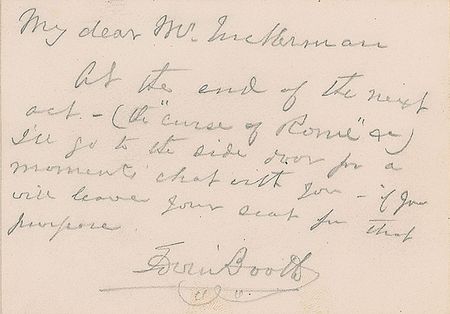 My dear Mr. Tuckerman
At the end of the next
act - (the "curse of Rome" &c)
I'll go to the side door for a
moment's chat with you - if you
will leave your seat for that
purpose.
Edwin Booth